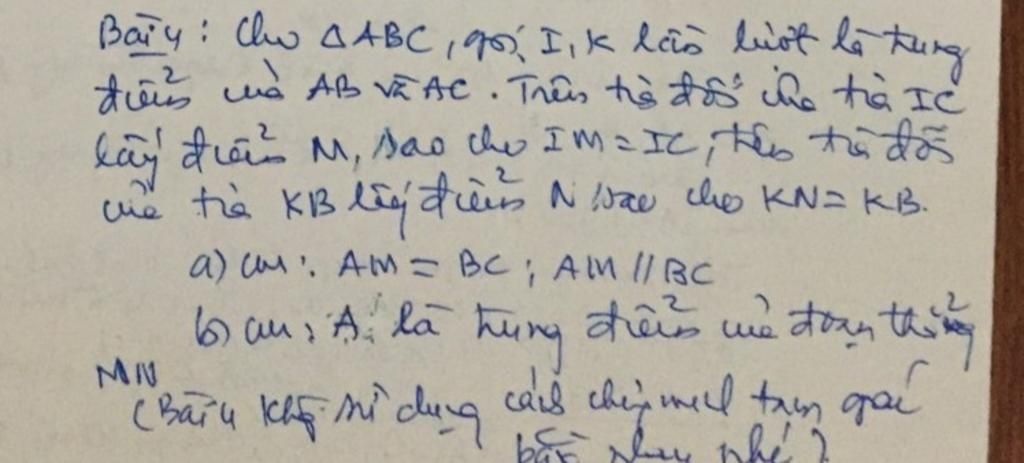 Bài 4: Cho ΔABC, gọi I, K lần lượt là trung
điểm của AB và AC. Trên tia đối của tia IC
lấy điểm M, sao cho IM = IC, trên tia đối
của tia KB lấy điểm N sao cho KN = KB.
a) CM: AM = BC; AM // BC
b) CM: A là trung điểm của đoạn thẳng
MN
(Bài 4 không sử dụng cách chứng minh tam giác
bằng nhau nhé)